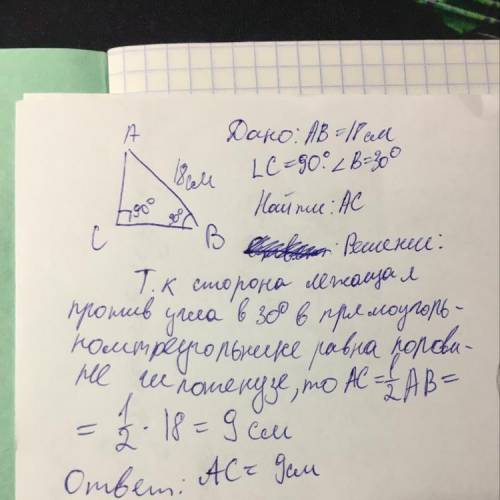 A
18 см
90°
30°
C
B
Дано: AB = 18 см
∠C = 90° ∠B = 30°
Найти: AC
Решение:
Т.к сторона лежащая
против угла в 30° в прямоуголь-
ном треугольнике равна полови-
не гипотенузе, то AC = 1/2 AB =
= 1/2 · 18 = 9 см
Ответ: AC = 9 см